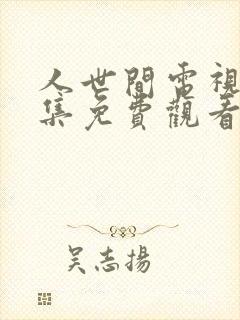 人世間電視
集免費觀看
吴志揚